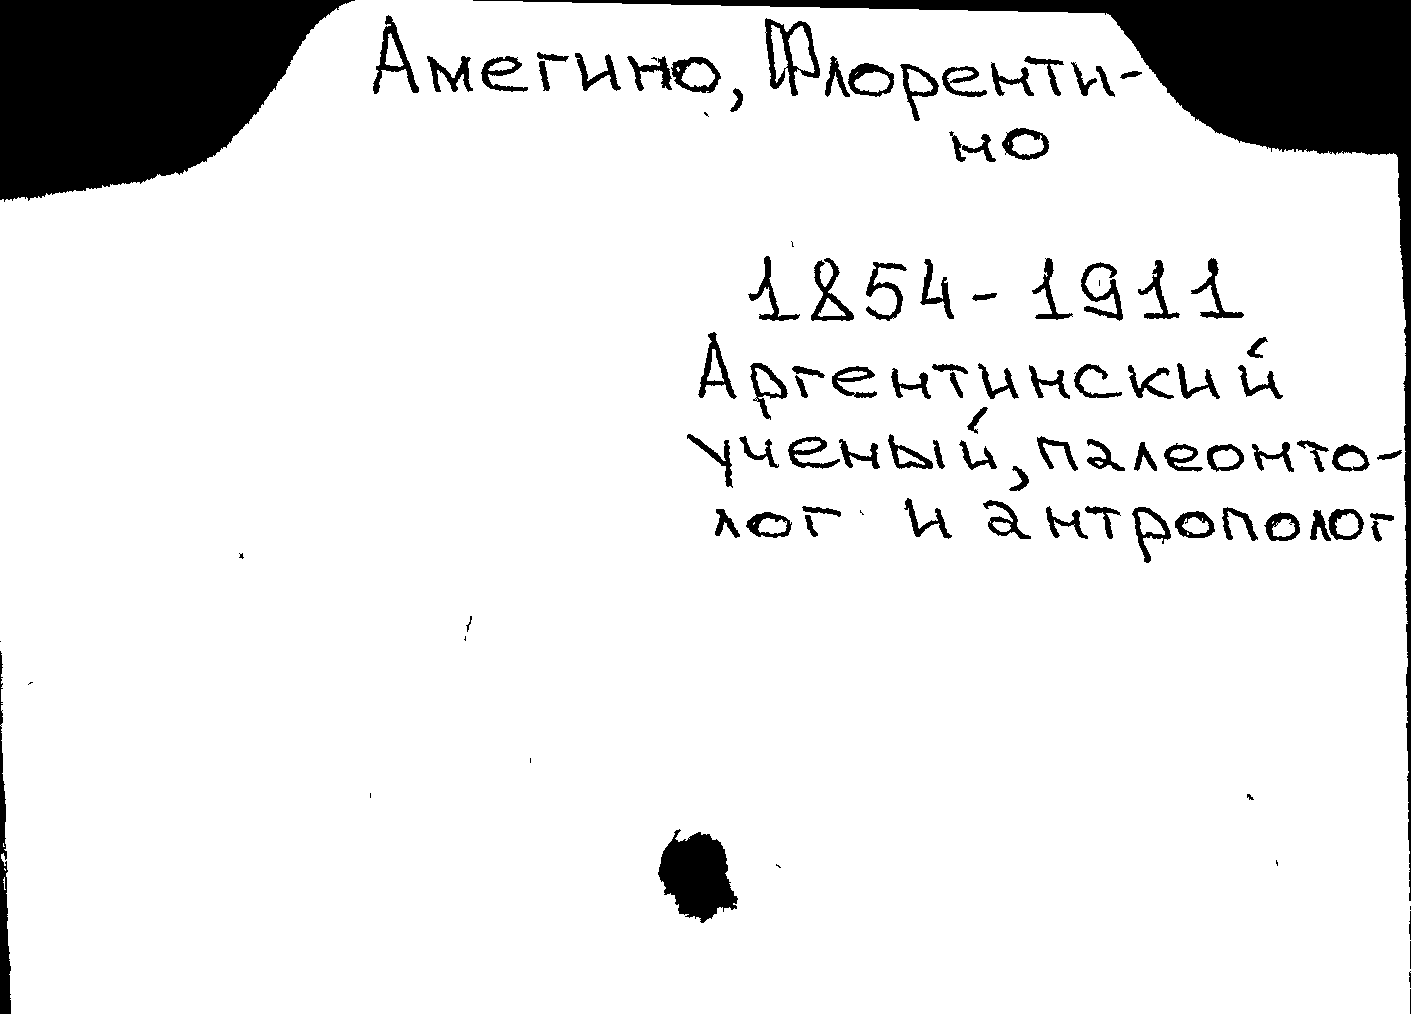 Амегино, Флоренти-
но
1854-1911
Аргентинский
ученый, палеонто-
лог и антрополог